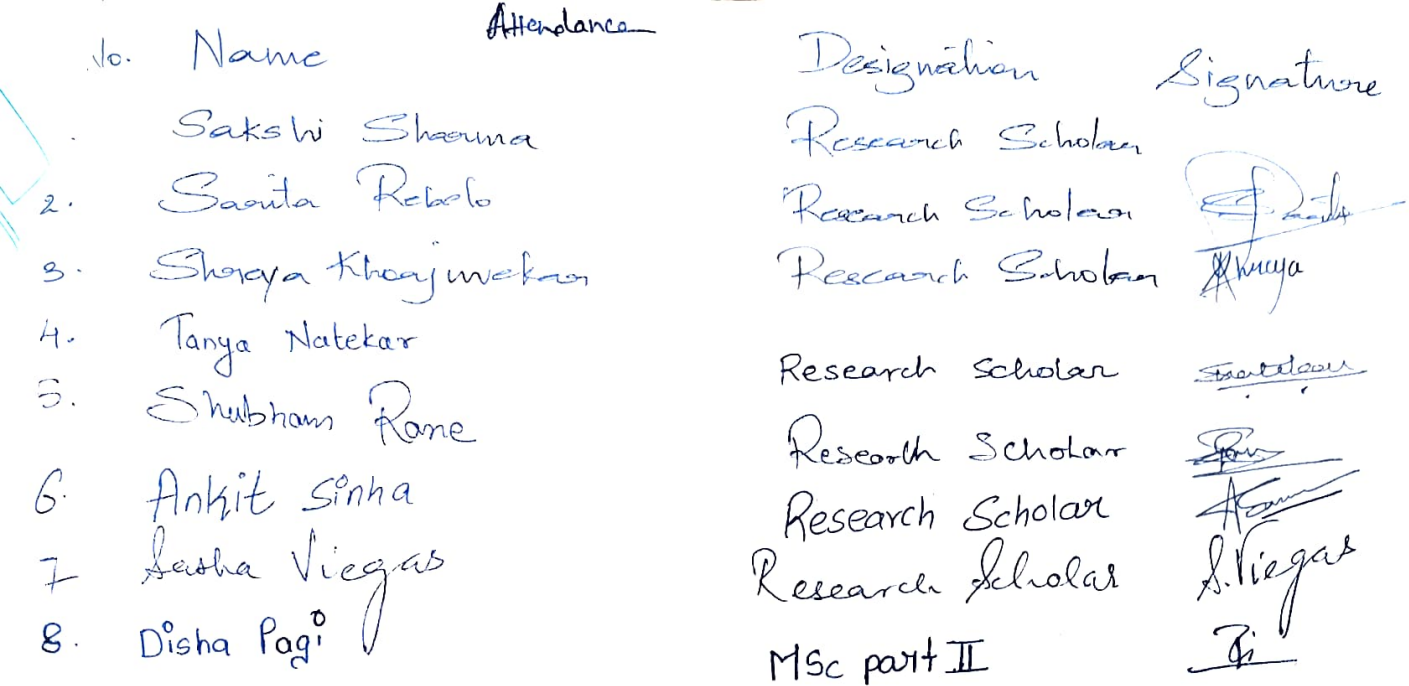 Attendance
No. Name Designation Signature
Sakshi Sharma Research Scholar
2. Sarita Rebelo Research Scholar
3. Shreya Kharjuvekar Research Scholar Shreya
4. Tanya Natekar Research Scholar
5. Shubham Rane Research Scholar
6. Ankit Sinha Research Scholar
7 Sasha Viegas Research Scholar S.Viegas
8. Disha Pagi MSc part II